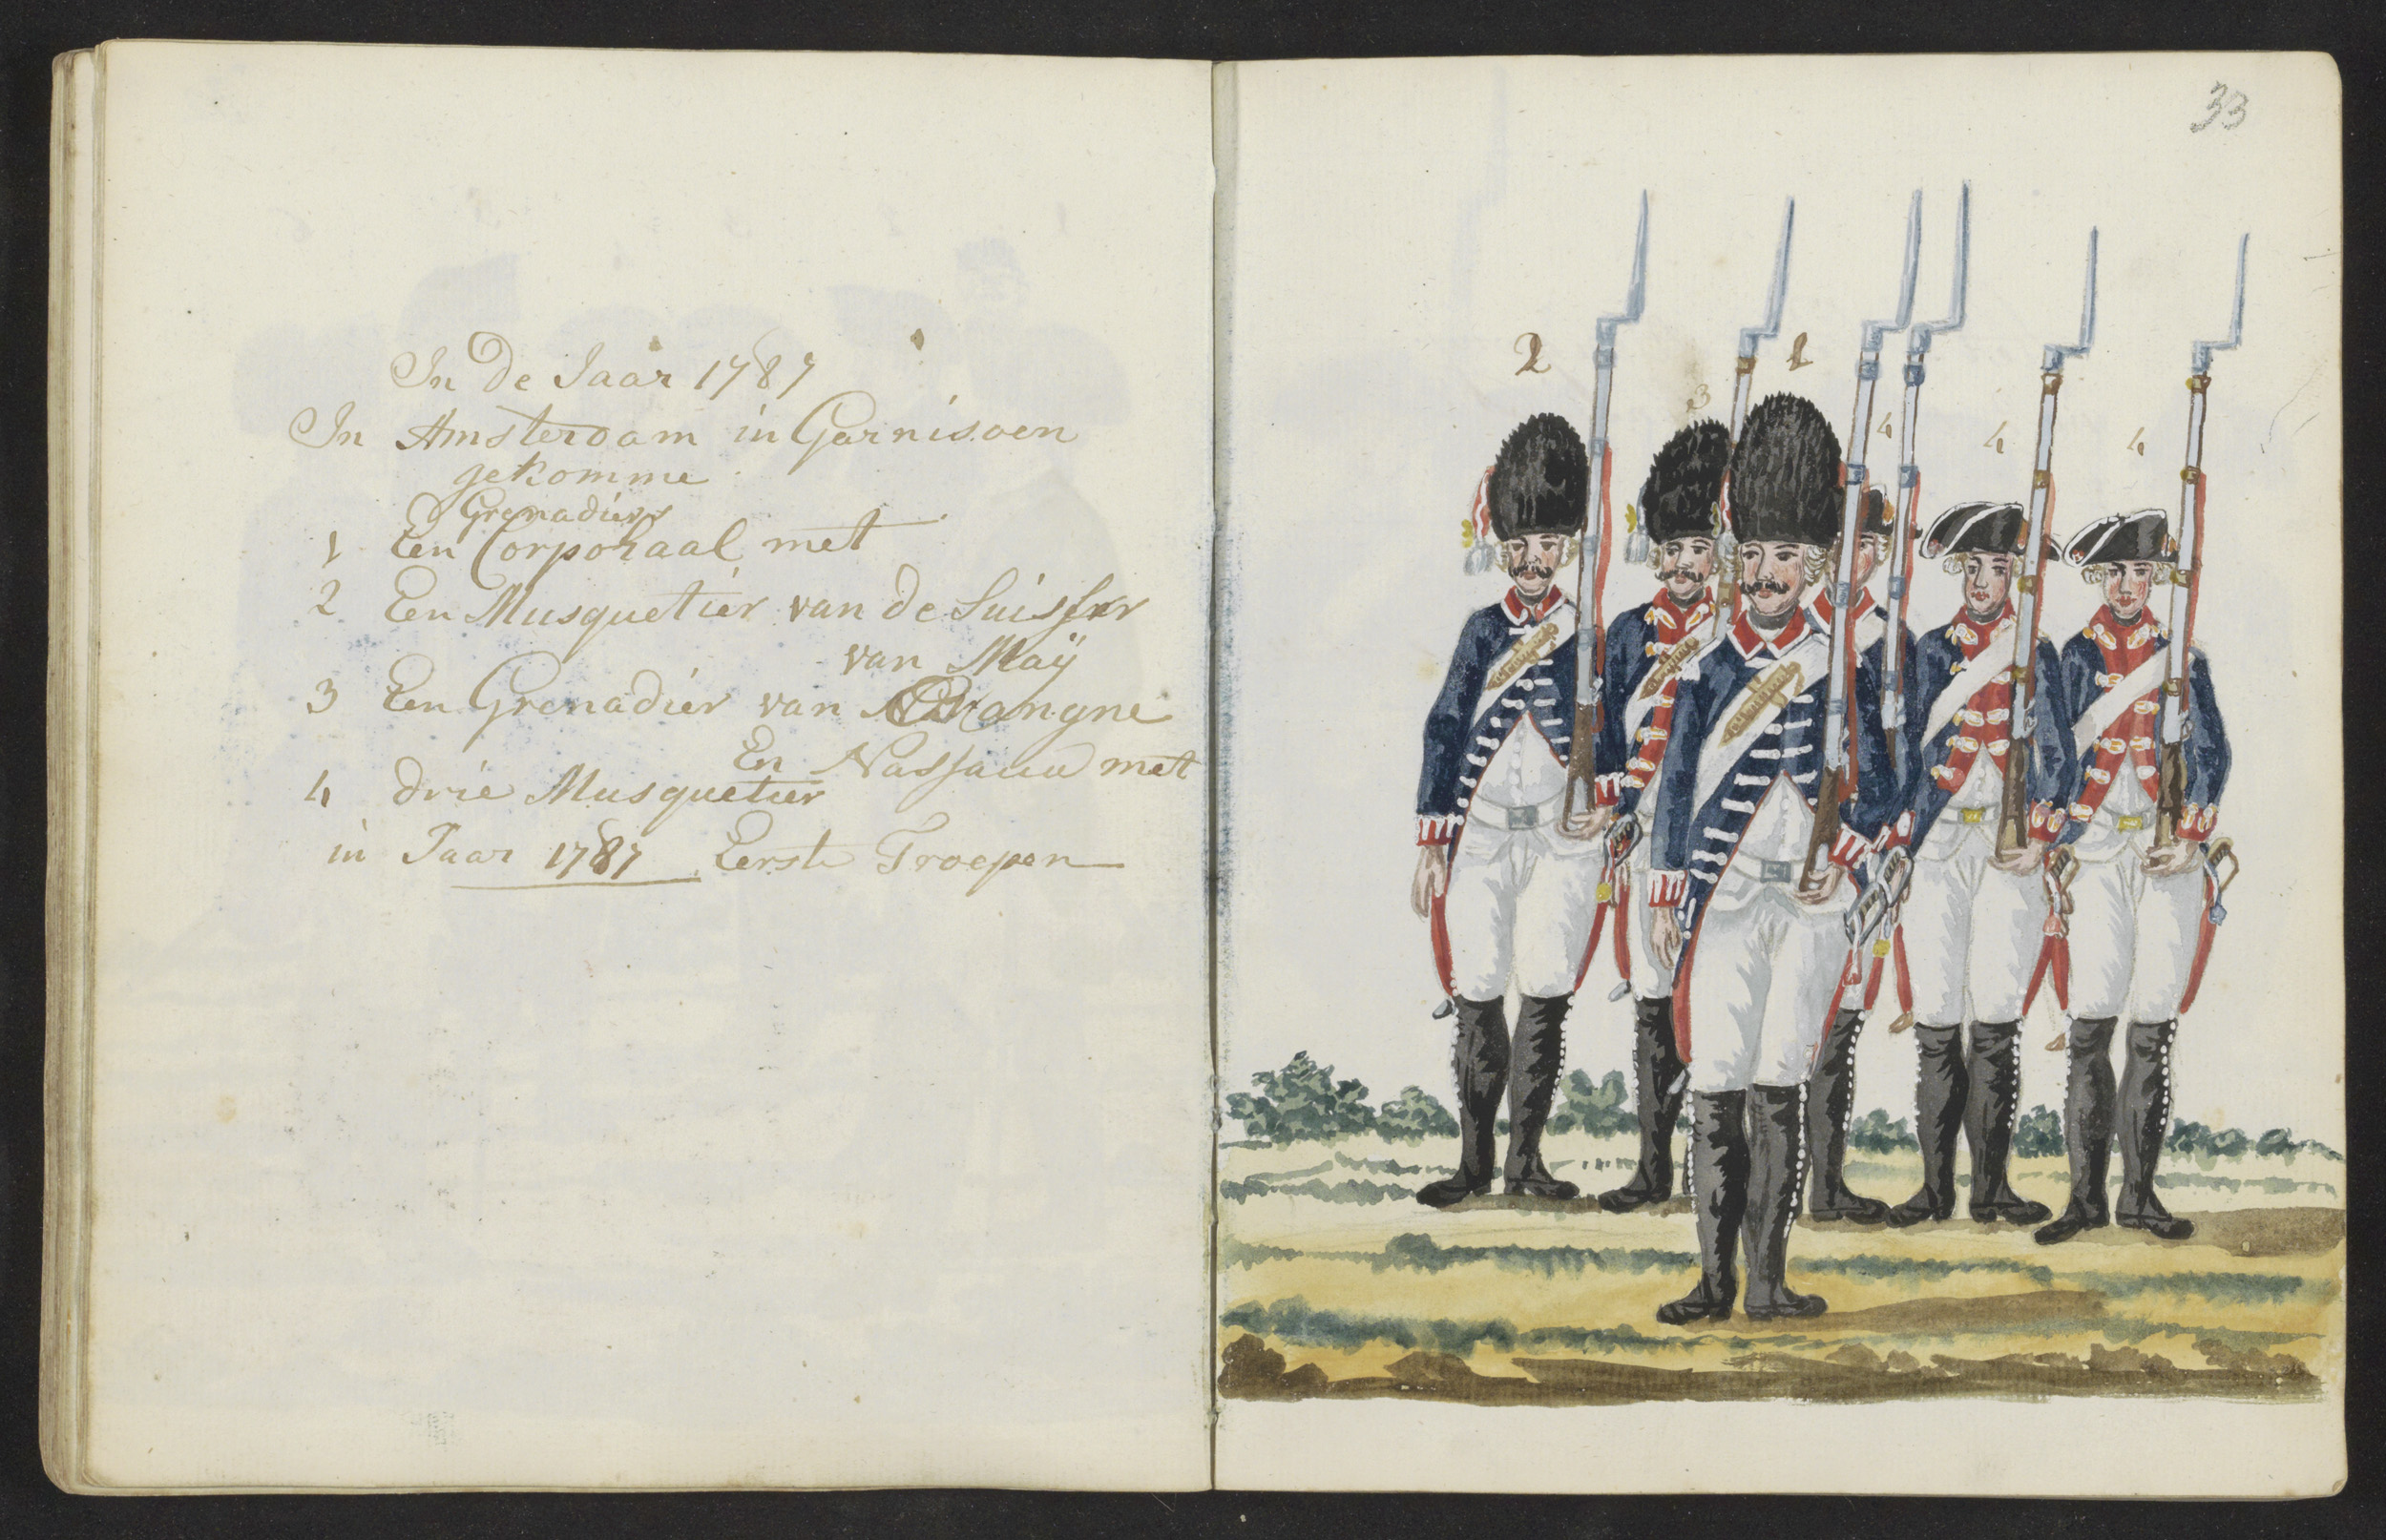 In de Jaar 1787
In Amsterdam in Garnisoen
gekomme
Grenadiers
1 Een Corporaal met
2 Een Musquetier van de Suisser
van Maÿ
3 Een Grenadier van Orangne
En Nassauw met
4 drie Musquetier
in Jaar 1787 Eerste Troepen
33
2 3 1 4 4 4